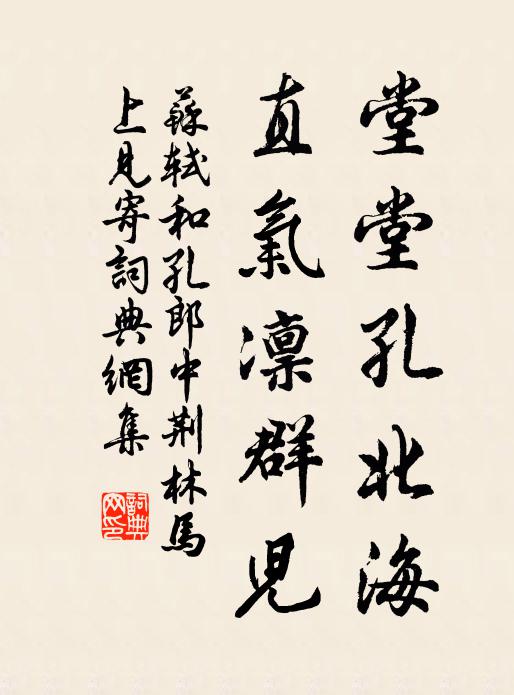 堂堂孔北海
直氣凛群兒
蘇軾和孔郎中荆林馬
上見寄詞典網集
詞典
网印